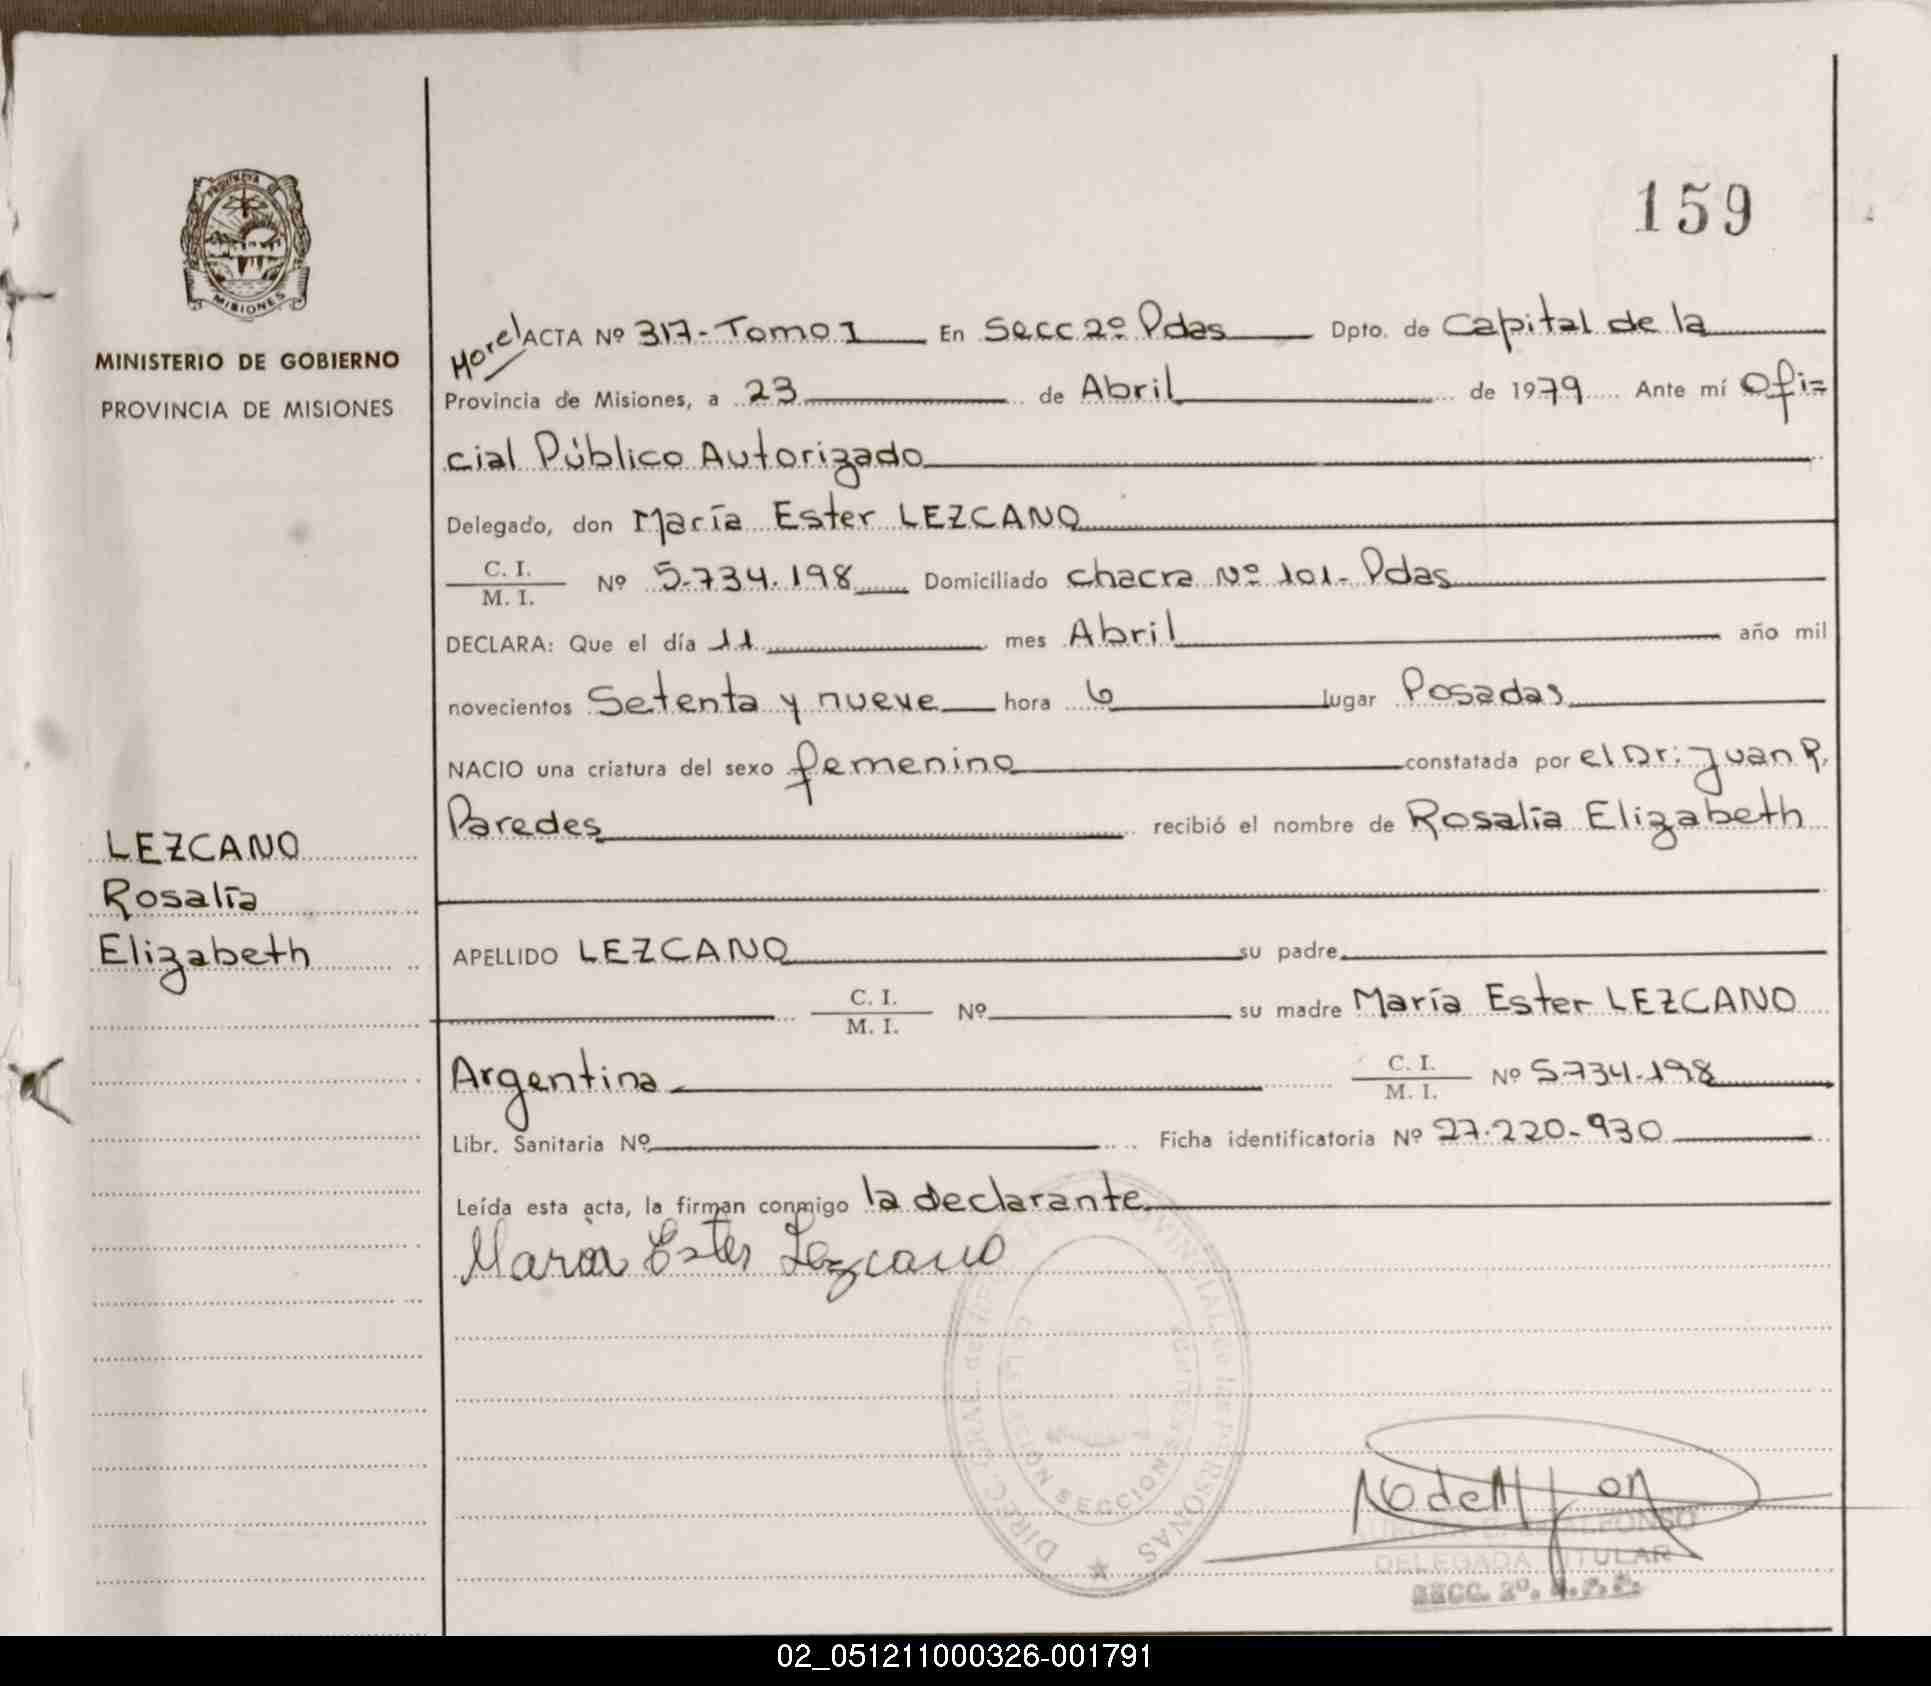 159
MISIONES
MINISTERIO DE GOBIERNO
PROVINCIA DE MISIONES
LEZCANO
Rosalía
Elizabeth
Morel ACTA Nº 317-Tomo I En Secc 2º Pdas Dpto. de Capital de la
Provincia de Misiones, a 23 de Abril de 1979 Ante mí Ofi=
cial Público Autorizado
Delegado, don María Ester LEZCANO
C. I.
M. I. Nº 5.734.198 Domiciliado chacra Nº 101-Pdas
DECLARA: Que el día 11 mes Abril año mil
novecientos Setenta y nueve hora 6 lugar Posadas
NACIO una criatura del sexo femenino constatada por el Dr: Juan R.
Paredes recibió el nombre de Rosalía Elizabeth
APELLIDO LEZCANO su padre
C. I.
M. I. Nº su madre María Ester LEZCANO
Argentina C. I.
M. I. Nº 5.734.198
Libr. Sanitaria Nº Ficha identificatoria Nº 27.220-930
Leída esta acta, la firman conmigo la declarante
María Ester Lezcano
DELEGADA TITULAR
SECC. 2º.
02_051211000326-001791